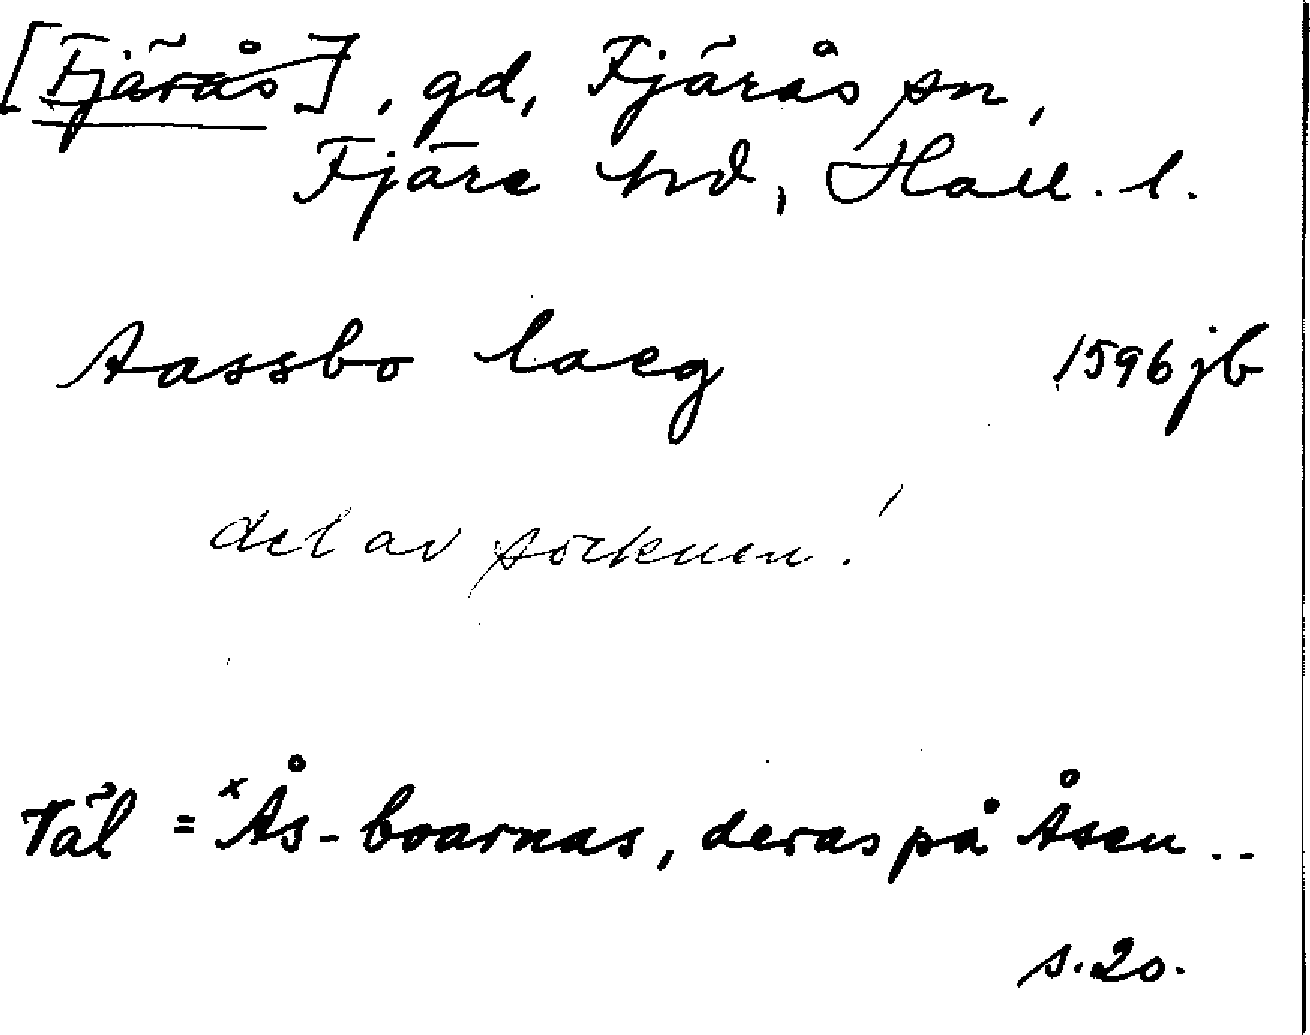 [Fjärås], gd, Fjärås sn,
Fjäre hd, Hall. l.
Aassbo laeg 1596 jb
del av socknen!
Väl = ˣÅs-boarnas, deras på Åsen . .
s. 20.